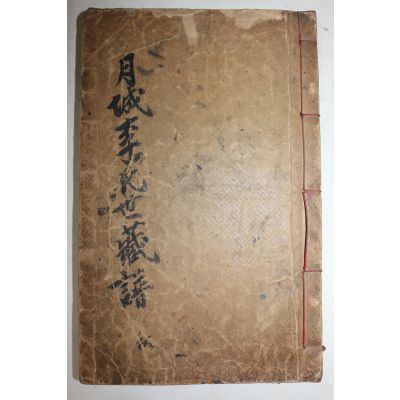 月城李氏世藏譜